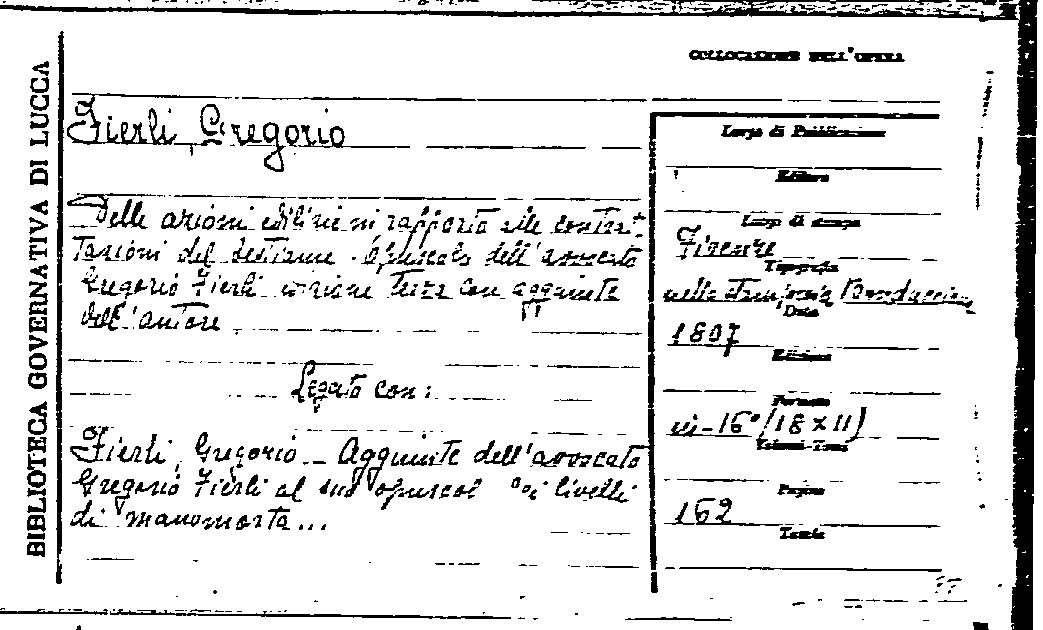 BIBLIOTECA GOVERNATIVA DI LUCCA
COLLOCAZIONE DELL'OPERA
Fierli, Gregorio
Delle azioni edilizie in rapporto alle contrat-
tazioni del bestiame. Opuscolo dell'avvocato
Gregorio Fierli edizione terza con aggiunte
dell'autore
Legato con:
Fierli, Gregorio _ Aggiunte dell'avvocato
Gregorio Fierli al suo opuscol dei livelli
di manomorta...
Luogo di Pubblicazione
Editore
Luogo di stampa
Firenze
Tipografia
nella stamperia
Data
1807
Edizione
Formato
in-16° (18 x 11)
Volumi-Tomi
Pagine
162
Tavole